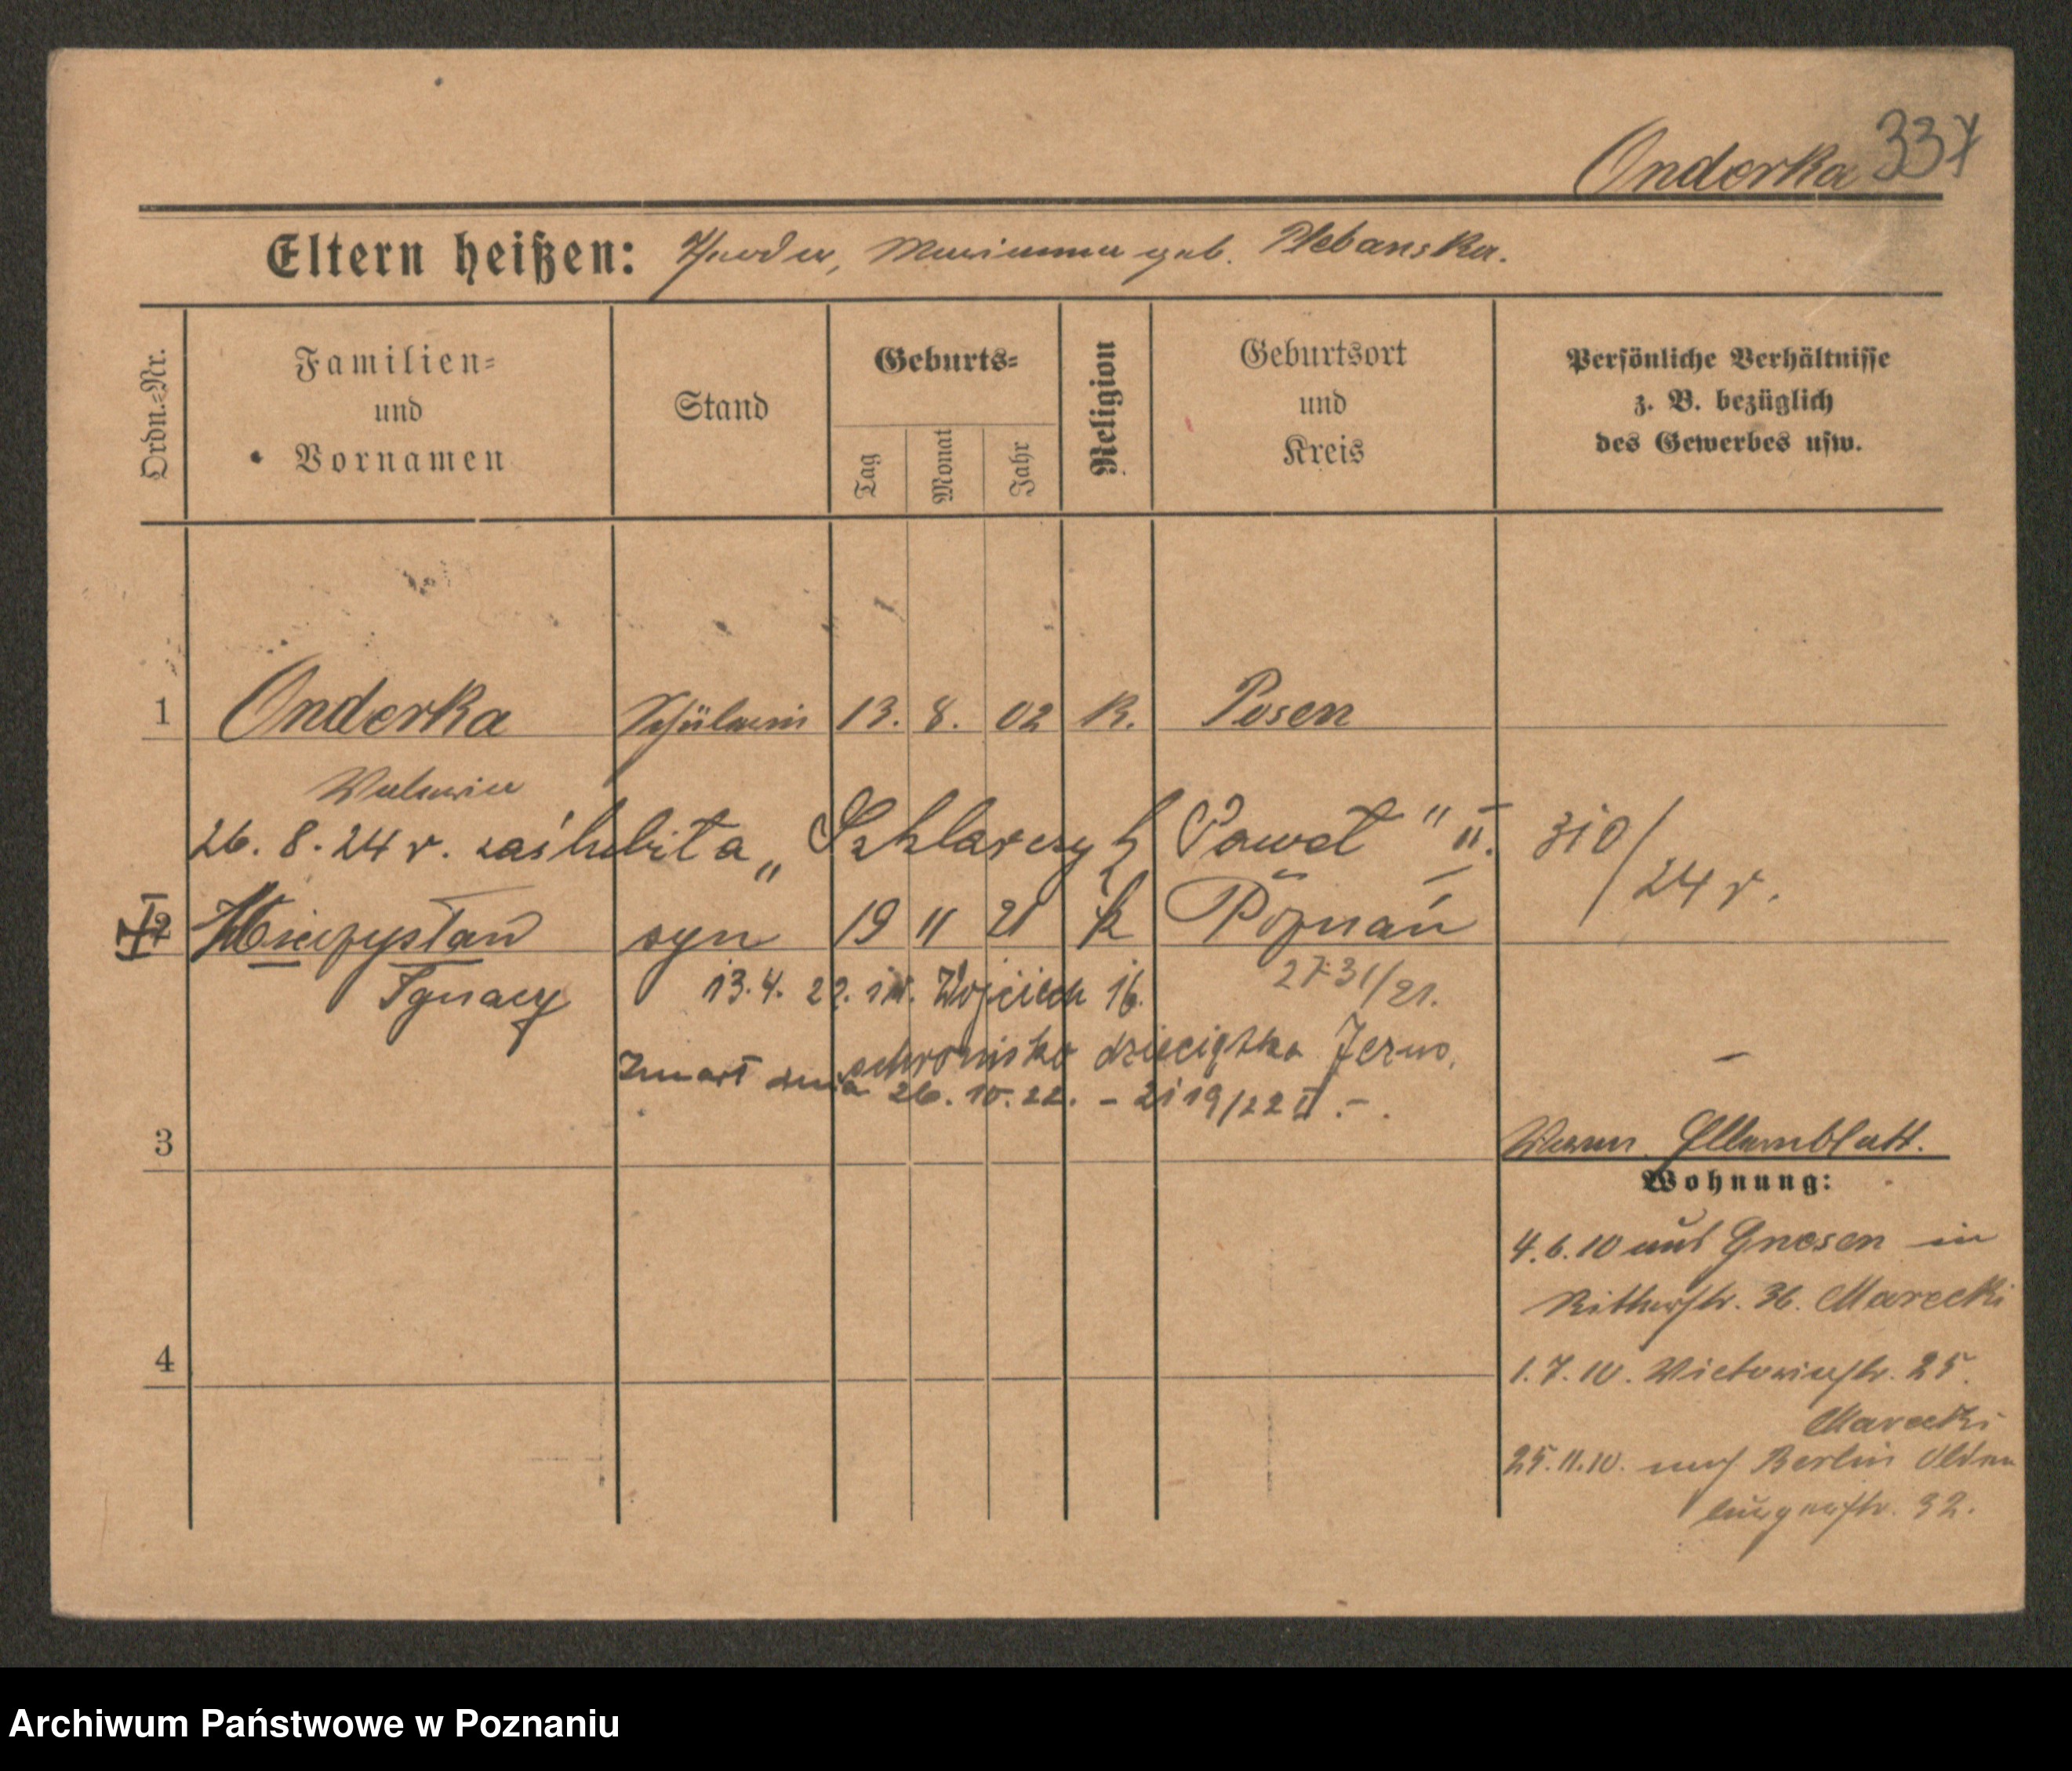 Onderka 337
Eltern heißen: Theodor, Marianna geb. Plebanska.
Ordn.=Nr.
Familien=
und
Vornamen
Stand
Geburts=
Tag
Monat
Jahr
Religion
Geburtsort
und
Kreis
Persönliche Verhältnisse
z. B. bezüglich
des Gewerbes usw.
1 Onderka Schülerin 13. 8. 02 K. Posen
Valeria
26. 8. 24 r. zaślubiła „Szklarczyk Paweł" II. 310/24 r.
2 Mieczysław syn 19 11 21 k Poznań
Ignacy 13. 4. 22. św. Wojciech 16. 2731/21.
schronisko dzieciątka Jezus.
Zmarł dnia 26. 10. 22. – 2119/22 II. –.
3
Elternblatt.
Wohnung:
4.6.10 aus Gnesen in
Ritterstr. 36. Marecki
4
1.7.10. Victoriastr. 25.
Marecki
25.11.10. nach Berlin Olden
burgerstr. 32.
Archiwum Państwowe w Poznaniu